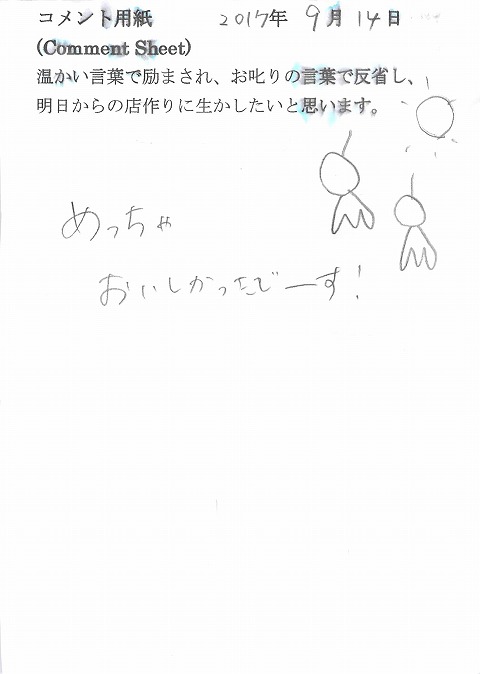 コメント用紙 2017年 9月 14日
(Comment Sheet)
温かい言葉で励まされ、お叱りの言葉で反省し、
明日からの店作りに生かしたいと思います。
めっちゃ
おいしかったでーす!